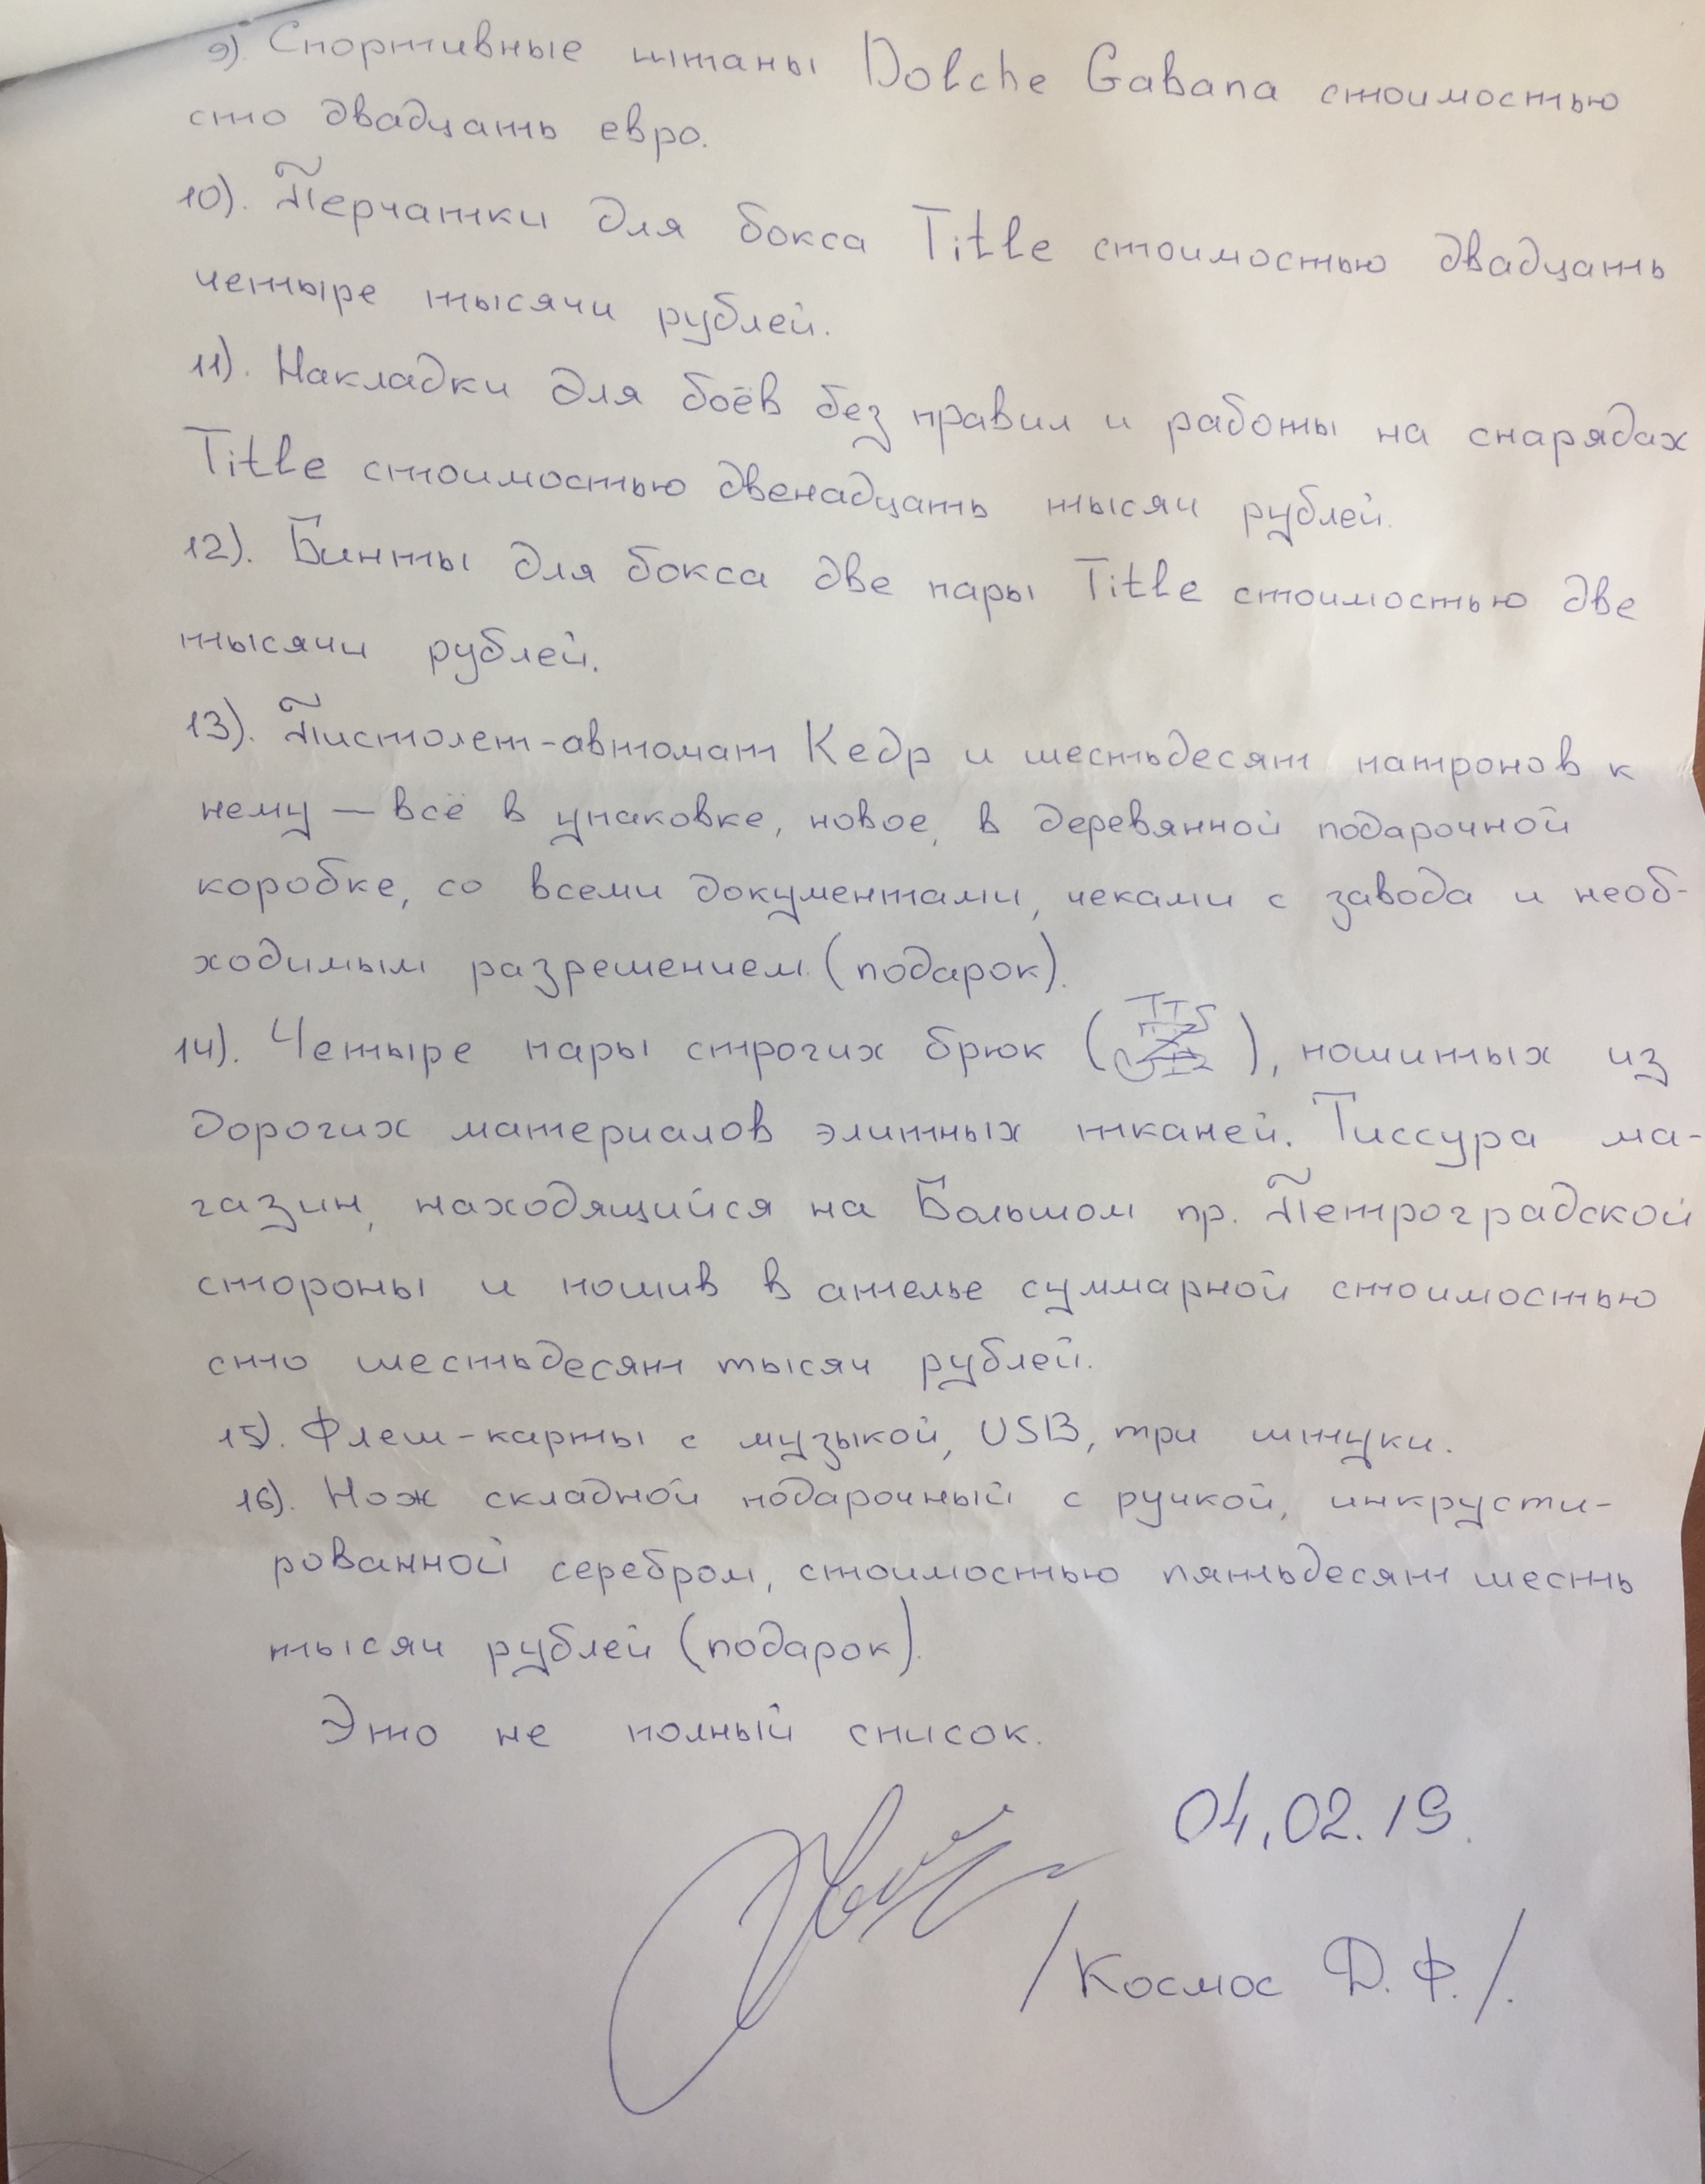 9). Спортивные штаны Dolche Gabana стоимостью
сто двадцать евро.
10). Перчатки для бокса Title стоимостью двадцать
четыре тысячи рублей.
11). Накладки для боёв без правил и работы на снарядах
Title стоимостью двенадцать тысяч рублей.
12). Бинты для бокса две пары Title стоимостью две
тысячи рублей.
13). Пистолет-автомат Кедр и шестьдесят патронов к
нему — всё в упаковке, новое, в деревянной подарочной
коробке, со всеми документами, чеками с завода и необ-
ходимым разрешением (подарок).
14). Четыре пары строгих брюк ( ), пошитых из
дорогих материалов элитных тканей. Тиссура ма-
газин, находящийся на Большом пр. Петроградской
стороны и пошив в ателье суммарной стоимостью
сто шестьдесят тысяч рублей.
15). Флеш-карты с музыкой, USB, три штуки.
16). Нож складной подарочный с ручкой, инкрусти-
рованной серебром, стоимостью пятьдесят шесть
тысяч рублей (подарок).
Это не полный список.
04.02.19.
/Космос Д.Ф./.